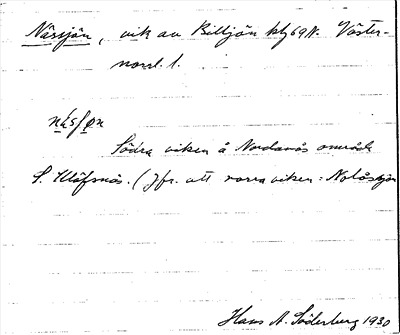 Nässjön, vik av Billsjön kbl 69 N. Väster-
norrl. l.
nás/øn
Södra viken å Nordanås område
S. (Jfr. att norra viken = Nolåsjön
Hans A. Söderberg 1930